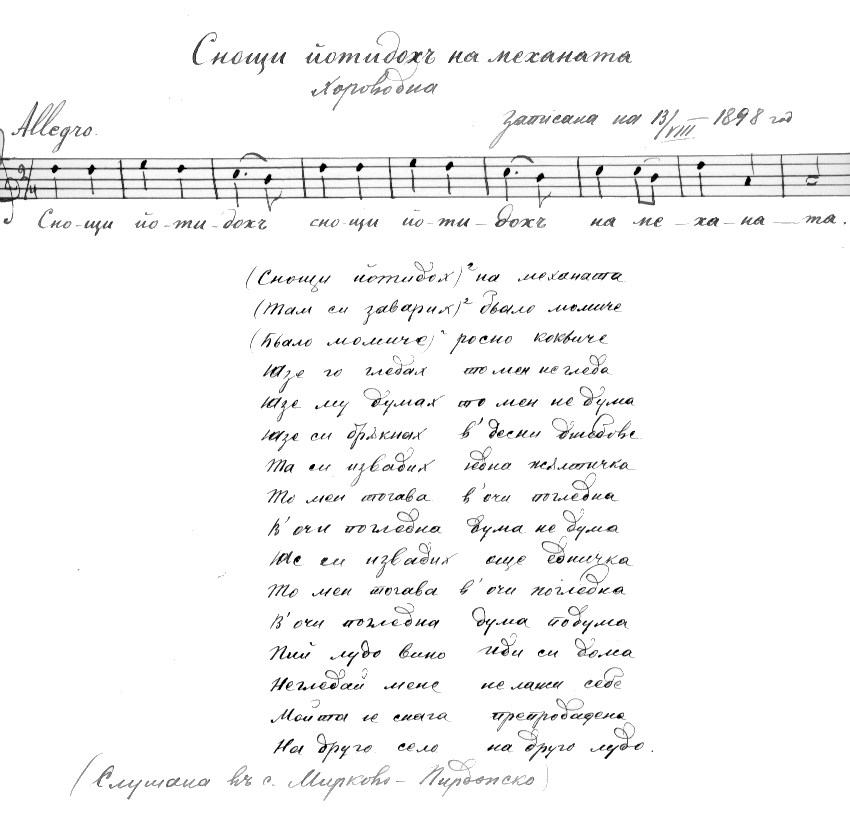 Снощи йотидохъ на механата
Хороводна
Allegro.
Записана на 13/VIII 1898 год
2/4
Сно-щи йо-ти-дохъ сно-щи йо-ти-дохъ на ме-ха-на-та.
(Снощи йотидох)² на механата
(Там си заварих)² бьало момиче
(Бьало момиче)² росно кокиче
Язе го гледах то мен не гледа
Язе му думах то мен не дума
Язе си бръкнах в' десни джебове
Та си извадих една жълтичка
То мен тогава в' очи погледна
В' очи погледна дума не дума
Яс си извадих още едничка
То мен тогава в' очи погледна
В' очи погледна дума подума
Пий лудо вино иди си дома
Негледай мене не лажи себе
Мойта е снага препродадена
На друго село на друго лудо.
(Слушана въ с. Мирково - Пирдопско)